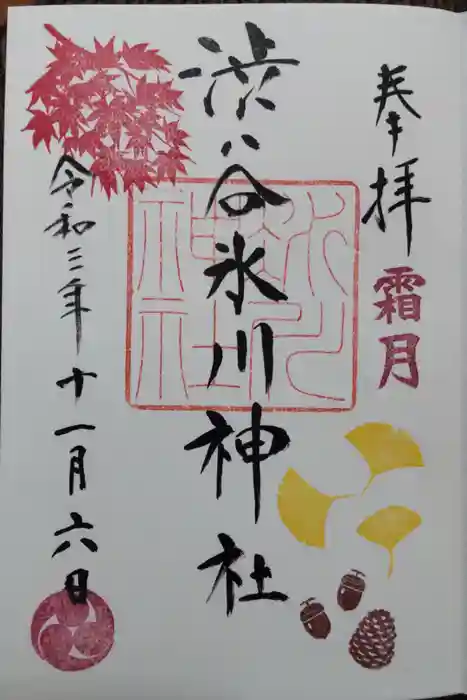 奉拝
霜月
渋谷氷川神社
令和三年十一月六日